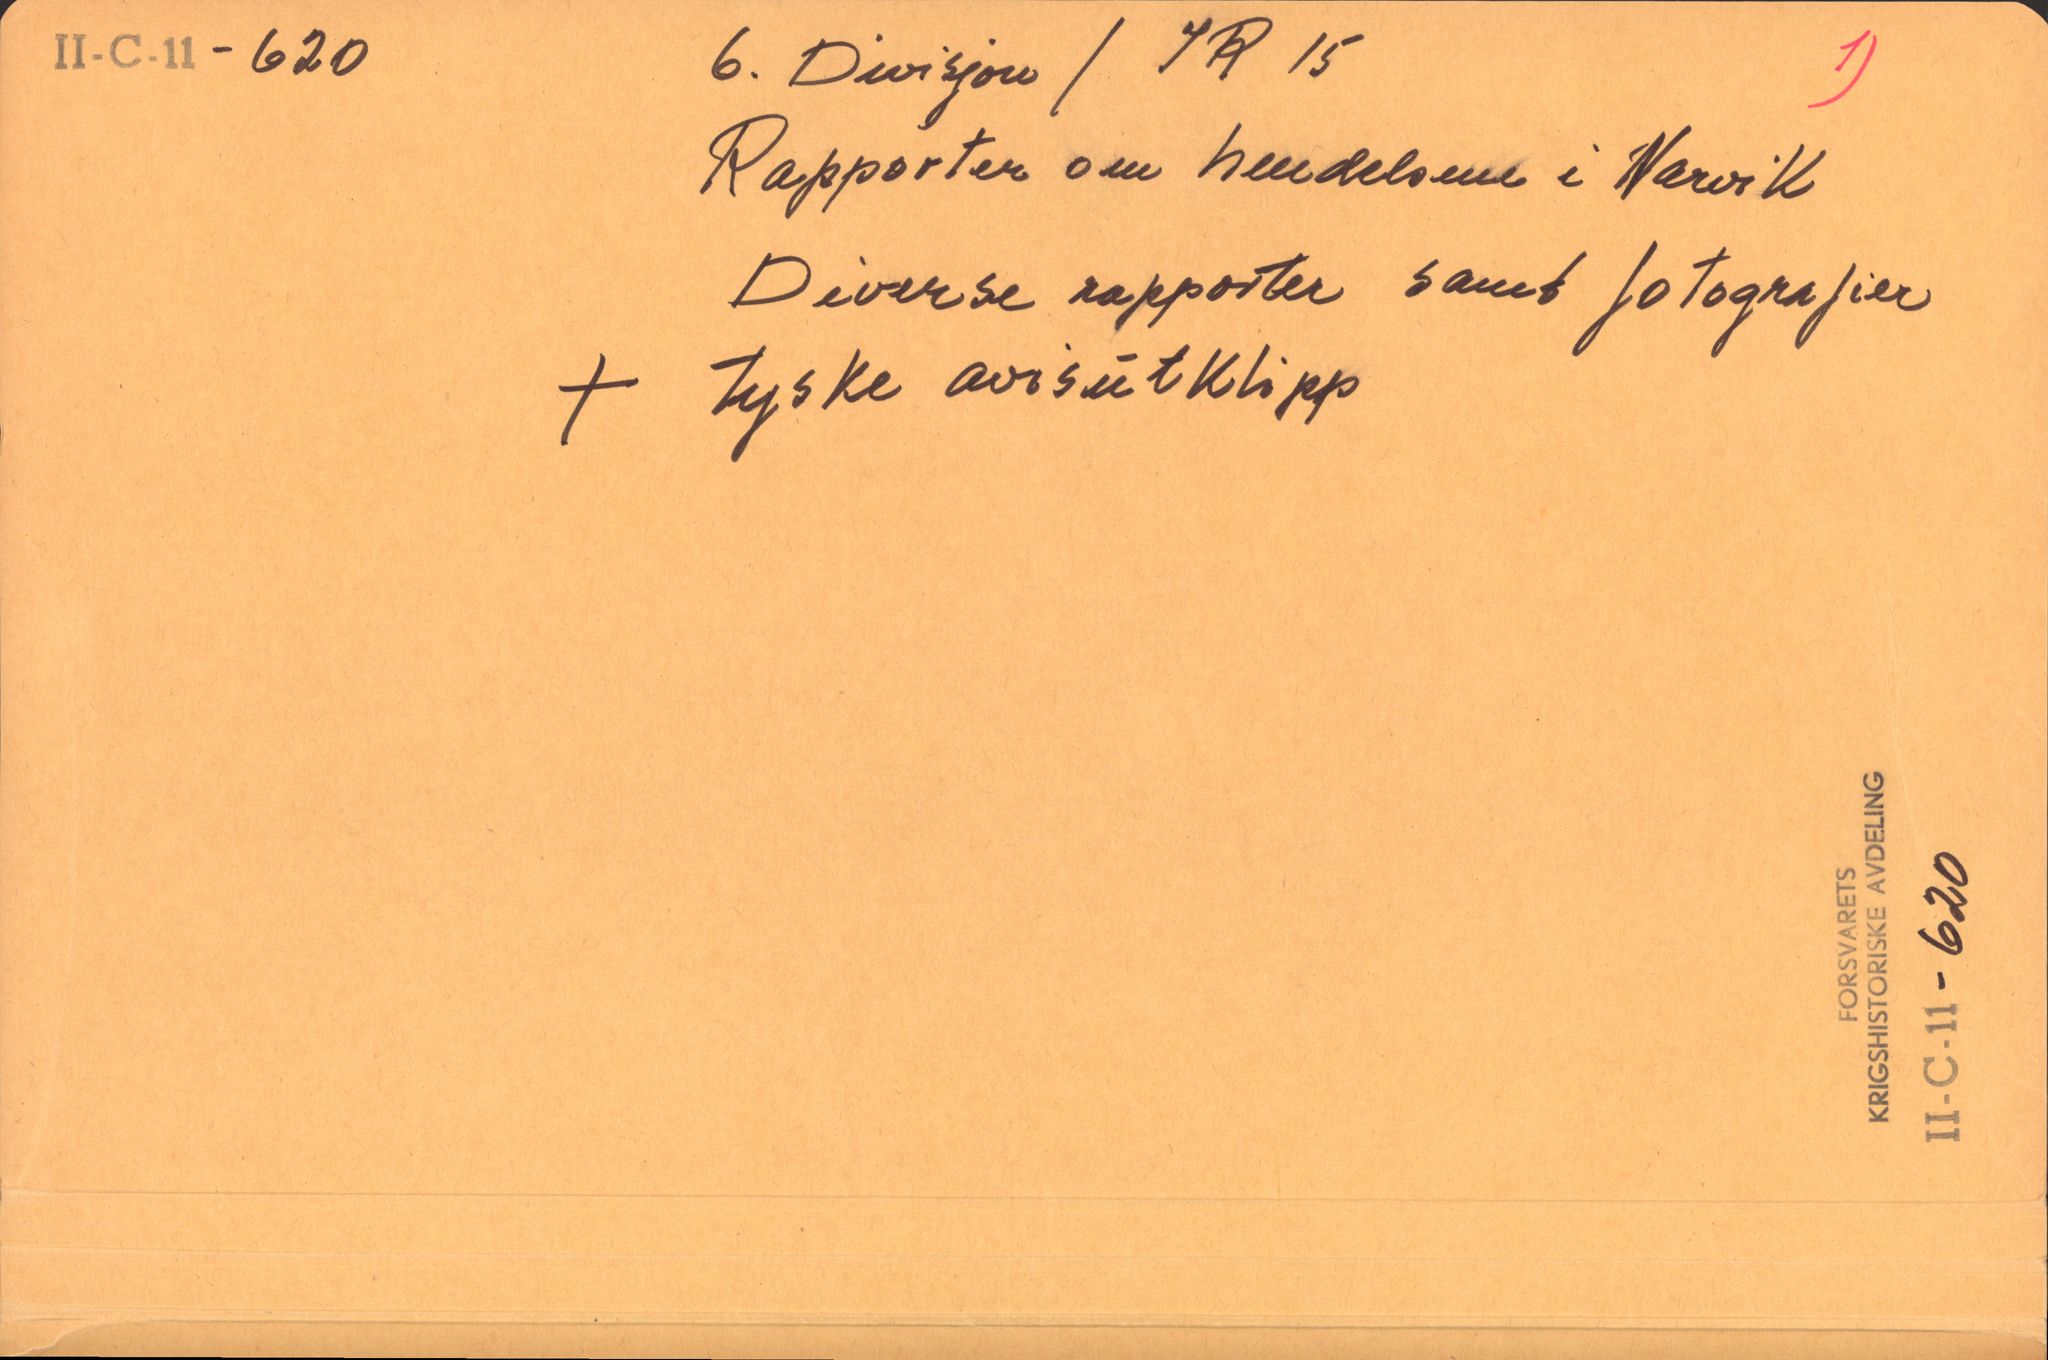 II-C-11-620
6. Divisjon / IR 15
1)
Rapporter om hendelsene i Narvik
Diverse rapporter samt fotografier
+ tyske avisutklipp
FORSVARETS
KRIGSHISTORISKE AVDELING
II-C-11-620